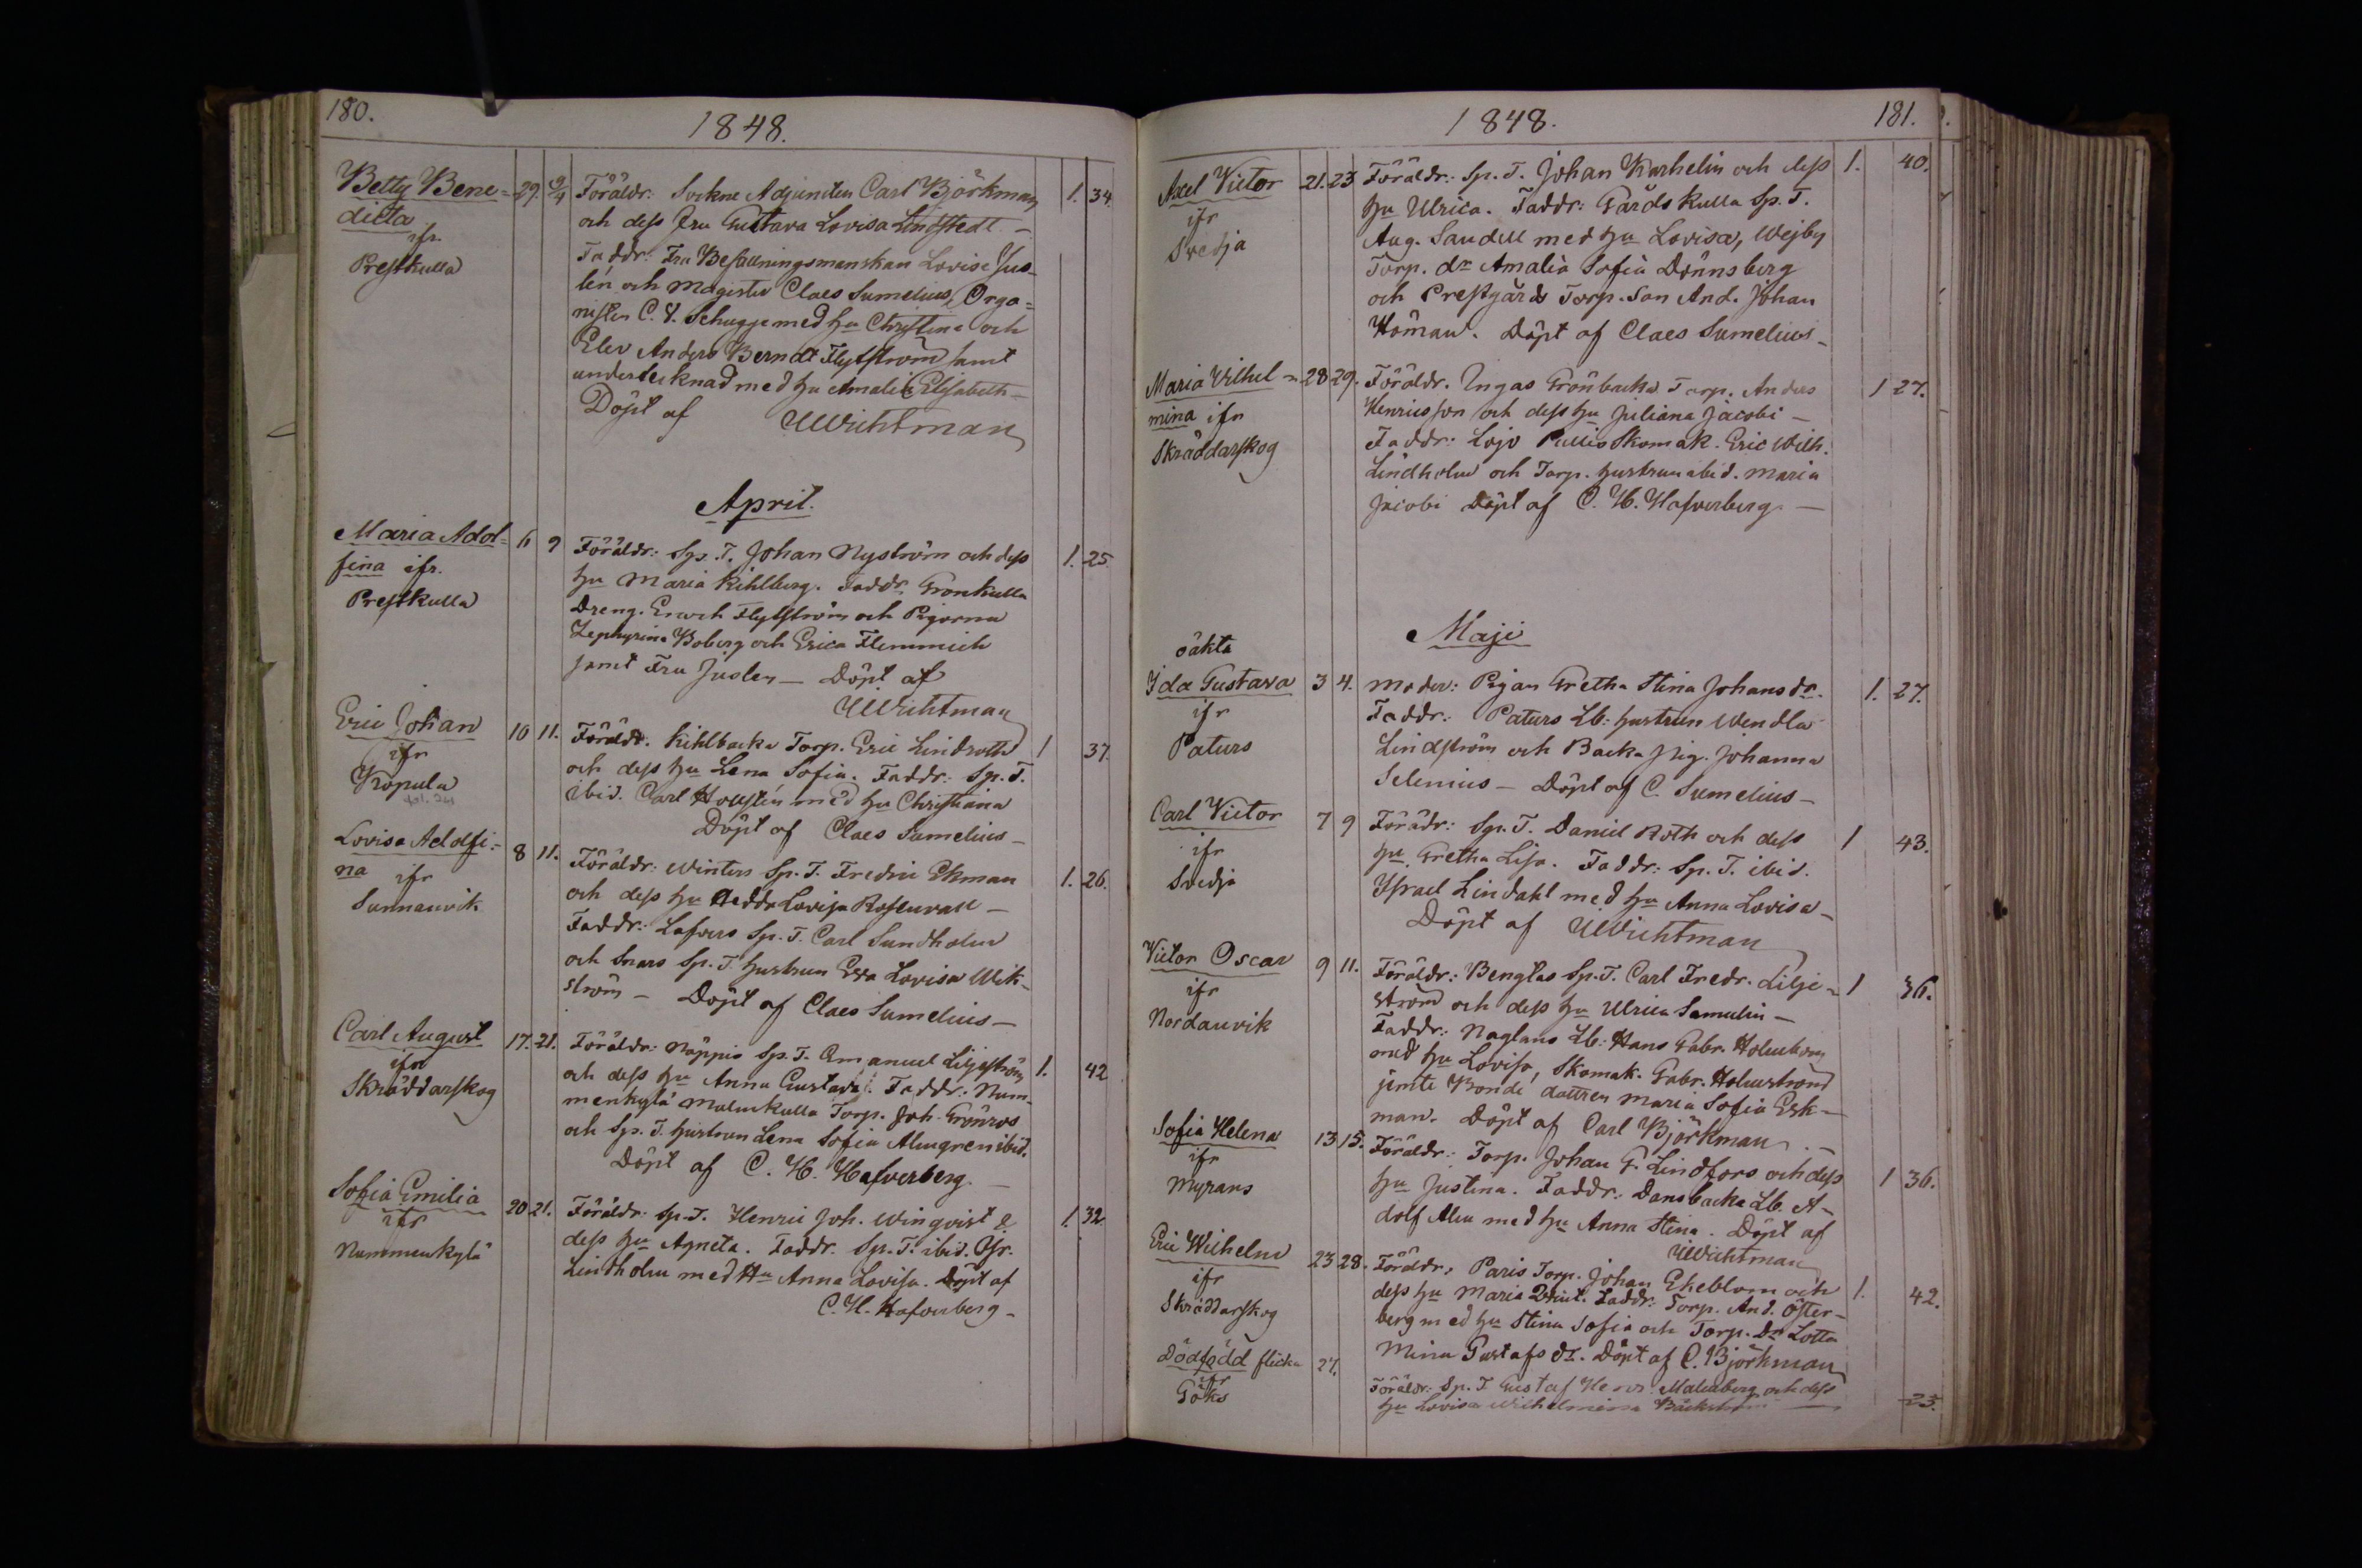 180.
1848.
Betty Bene= 29. 9/4 Föräldr: Sockne Adjuncten Carl Björkman 1. 34.
dicta och dess Fru Gustava Lovisa Lindstedt —
ifr. Faddr: Fru Befallningsmanskan Lovisa Jus-
Prestkulla lén och Magister Claes Sumelius, Orga=
nisten C. V. Schugge med hu Christina och
Elev Anders Berndt Flytström samt
undertecknad med hu Amalia Elisabeth —
Döpt af UWichtman
April.
Maria Adol= 6 9 Föräldr: Sp. T. Johan Nyström och dess 1. 25.
fina ifr. hu Maria Kihlberg. Faddr. Grönkulla
Prestkulla Dreng. Enoch Flytström och Pigorna
Zephyrina Boberg och Erica Flemmich
samt Fru Juslen — Döpt af
UWichtman
Eric Johan 10 11. Föräldr. Kihlbacka Torp. Eric Lindroth 1 37.
ifr och dess hu Lena Sofia. Faddr: Sp. T.
Köpula ibid. Carl Hollstén med hu Christiana
Döpt af Claes Sumelius —
Lovisa Adolfi- 8 11. Föräldr: Winters Sp. T. Fredric Ekman 1. 26.
na ifr och dess hu Hedda Lovisa Rosenvall —
Sannanvik Faddr: Lafvers Sp. T. Carl Sundholm
och Snars Sp. T. hustrun Eva Lovisa Wik-
ström — Döpt af Claes Sumelius —
Carl August 17. 21. Föräldr: Nöppis Sp. T. Emanuel Liljeström 1. 42
ifr och dess hu Anna Gustava. Faddr: Num-
Skräddarskog menkylä Malmkulla Torp. Joh. Grönros
och Sp. T. hustrun Lena Sofia Almgren ibid.
Döpt af C. H. Hafverberg. —
Sofia Emilia 20 21. Föräldr. Sp. T. Henric Joh. Winqvist & 1. 32
ifr dess hu Agneta. Faddr. Sp. T. ibid. Gr.
Nummenkylä Lindholm med Hu Anna Lovisa. Döpt af
C. H. Hafverberg —
1848.
181.
Axel Victor 21. 23 Föräldr: Sp. T. Johan Karhelin och dess 1. 40.
ifr hu Ulrica. Faddr: Gårdskulla Sp. T.
Svedja Aug. Sandell med hu Lovisa, Wejby
Torp. dr Amalia Sofia Dönnsberg
och Prestgårds Torp. Son And. Johan
Höman. Döpt af Claes Sumelius —
Maria Vilhel= 28 29. Föräldr. Ingas Grönbacka Torp. Anders 1 27.
mina ifr Henricsson och dess hu Juliana Jacobi —
Skräddarskog Faddr: Lojo Pullis Skomak. Eric Wilh.
Lindholm och Torp. hustrun ibid. Maria
Jacobi Döpt af C. H. Hafverberg —
Maji
oäkta
Ida Gustava 3 4. Moder: Pigan Gretha Stina Johansdr. 1. 27.
ifr Faddr: Paturs Lb: hustrun Wendla
Paturs Lindström och Backa Pig. Johanna
Selenius — Döpt af C. Sumelius —
Carl Victor 7 9 Förädr: Sp. T. Daniel Roth och dess 1 43.
ifr hu Gretha Lisa. Faddr: Sp. T. ibid.
Svedja Israel Lindahl med hu Anna Lovisa —
Döpt af UWichtman
Victor Oscar 9 11. Föräldr: Bengtas Sp. T. Carl Fredr. Lilje= 1 36.
ifr ström och dess hu Ulrica Samulin —
Nordanvik Faddr: Naglans Lb: Hans Gabr. Holmberg
med hu Lovisa, Skomak. Gabr. Holmström
jemte Bonde dottren Maria Sofia Esk-
man. Döpt af Carl Björkman. —
Sofia Helena 13 15. Föräldr: Torp. Johan G. Lindfors och dess 1 36.
ifr hu Justina. Faddr: Dansbacka Lb. A-
Myrans dolf Alm med hu Anna Stina. Döpt af
UWichtman
Eric Wilhelm 23 28. Föräldr, Paris Torp. Johan Ekeblom och 1. 42.
ifr dess hu Maria Faddr: Torp. And. Öster-
Skräddarskog berg med hu Stina Sofia och Torp. Dr Lotta
Mina Gustafs dr. Döpt af C. Björkman
Dödfödd flicka 27. Föräldr. Sp. T. Gustaf Malmberg och dess
ifr hu Lovisa Wilhelmina Bäckström — 23.
Göks